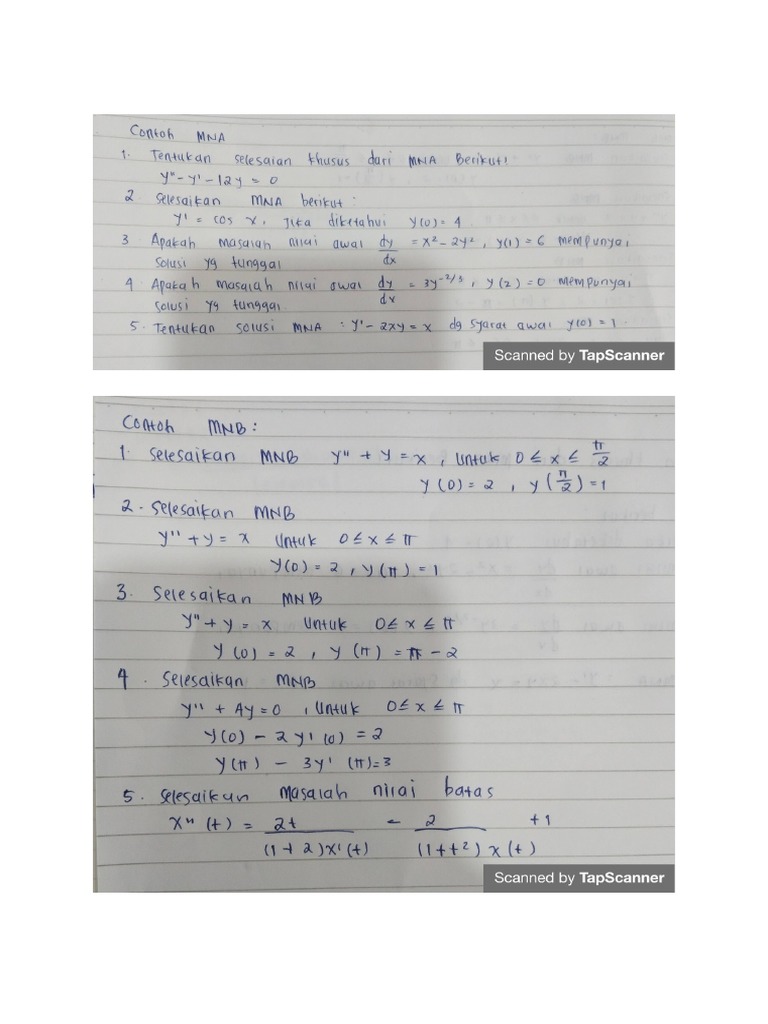 Contoh MNA
1. Tentukan selesaian khusus dari MNA Berikut!
y" - y' - 12y = 0
2 Selesaikan MNA berikut :
y' = cos x, Jika diketahui y(0) = 4
3 Apakah masalah nilai awal dy/dx = x² - 2y², y(1) = 6 mempunyai
solusi yg tunggal
4 Apakah masalah nilai awal dy/dx = 3y^(-2/3), y(2) = 0 mempunyai
solusi yg tunggal.
5. Tentukan solusi MNA : y' - 2xy = x dg syarat awal y(0) = 1.
Scanned by TapScanner
Contoh MNB :
1. Selesaikan MNB y" + y = x, Untuk 0 ≤ x ≤ π/2
y(0) = 2, y(π/2) = 1
2. Selesaikan MNB
y" + y = x Untuk 0 ≤ x ≤ π
y(0) = 2, y(π) = 1
3. Selesaikan MNB
y" + y = x Untuk 0 ≤ x ≤ π
y(0) = 2, y(π) = π - 2
4. Selesaikan MNB
y" + Ay = 0, Untuk 0 ≤ x ≤ π
y(0) - 2y'(0) = 2
y(π) - 3y'(π) = 3
5. Selesaikan masalah nilai batas
x"(t) = 2t/(1+2)x'(t) - 2/(1+t²)x(t) + 1
Scanned by TapScanner